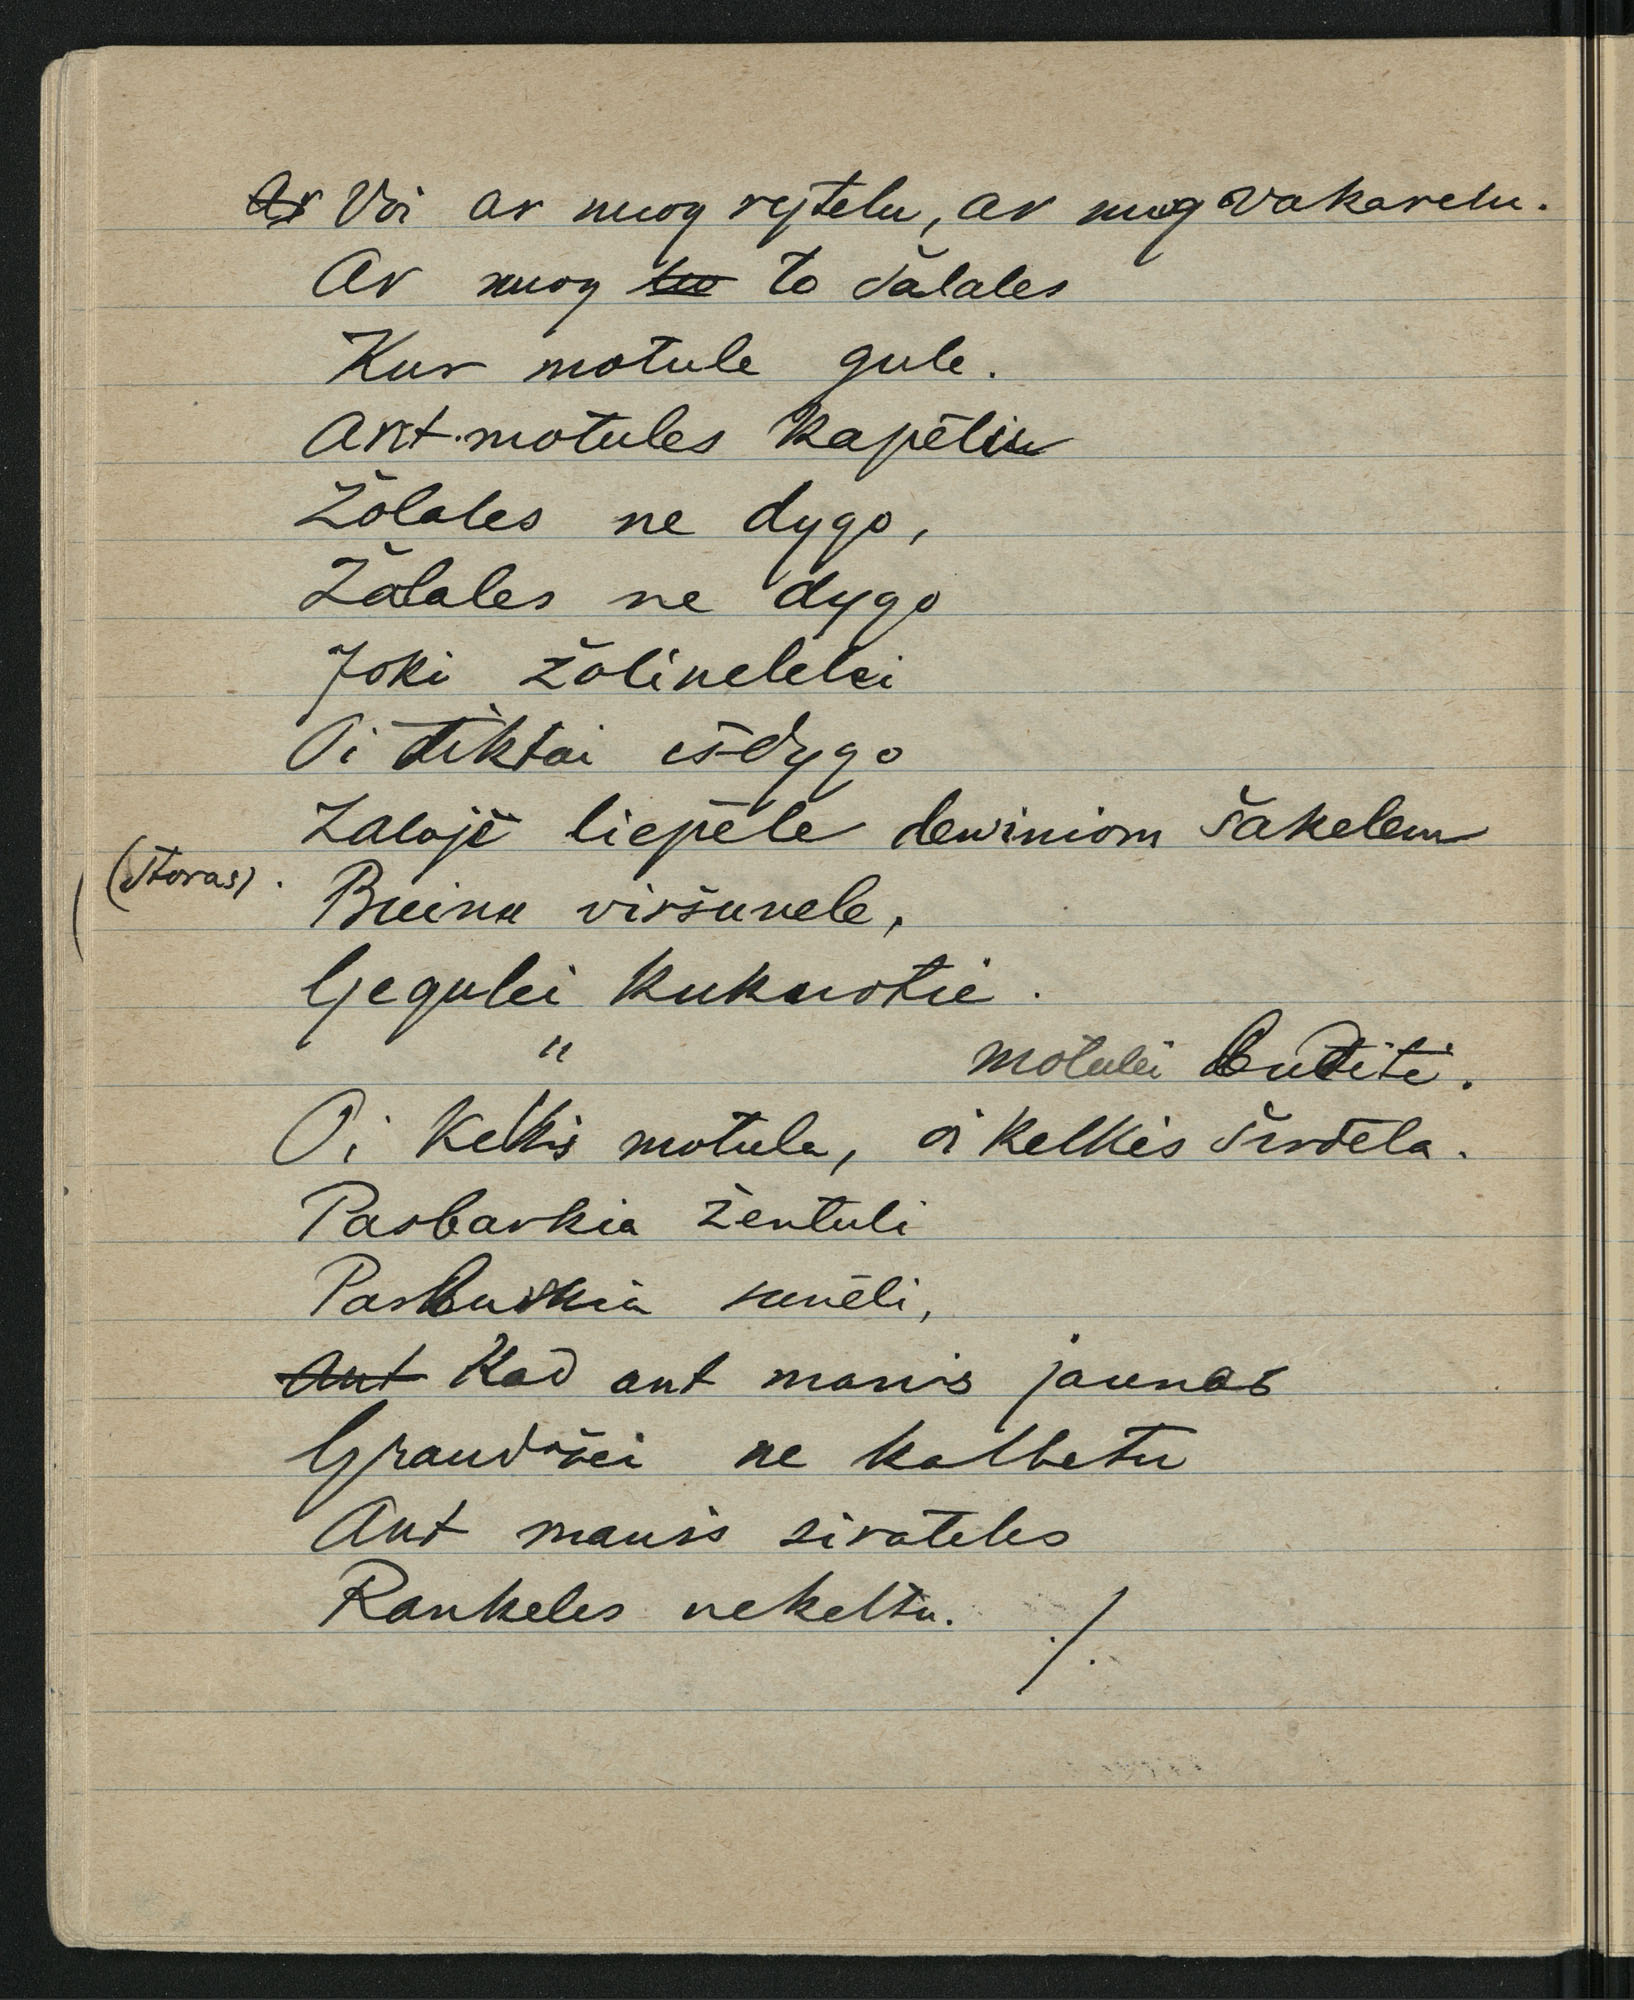 Ar Voi ar nuog rytelu, ar nuog vakarelu.
Ar nuog tuo to šalales
Kur motule gule.
Ant motules kapēliu
Žolales ne dygo,
Žolales ne dygo
Joki žolinelelei
Oi tiktai išdygo
Zaloji liepēle dewiniom šakelem
(storas). Buinu viršunele,
Gegulei kukuotie.
" motulei budite.
Oi kelkis motula, oi kelkis širdēla.
Parbarkia žentuli
Parbuskia sunēli,
Ant Kad ant manis jaunas
Graudžei ne kalbetu
Ant manis sirateles
Rankeles nekeltu. ./.